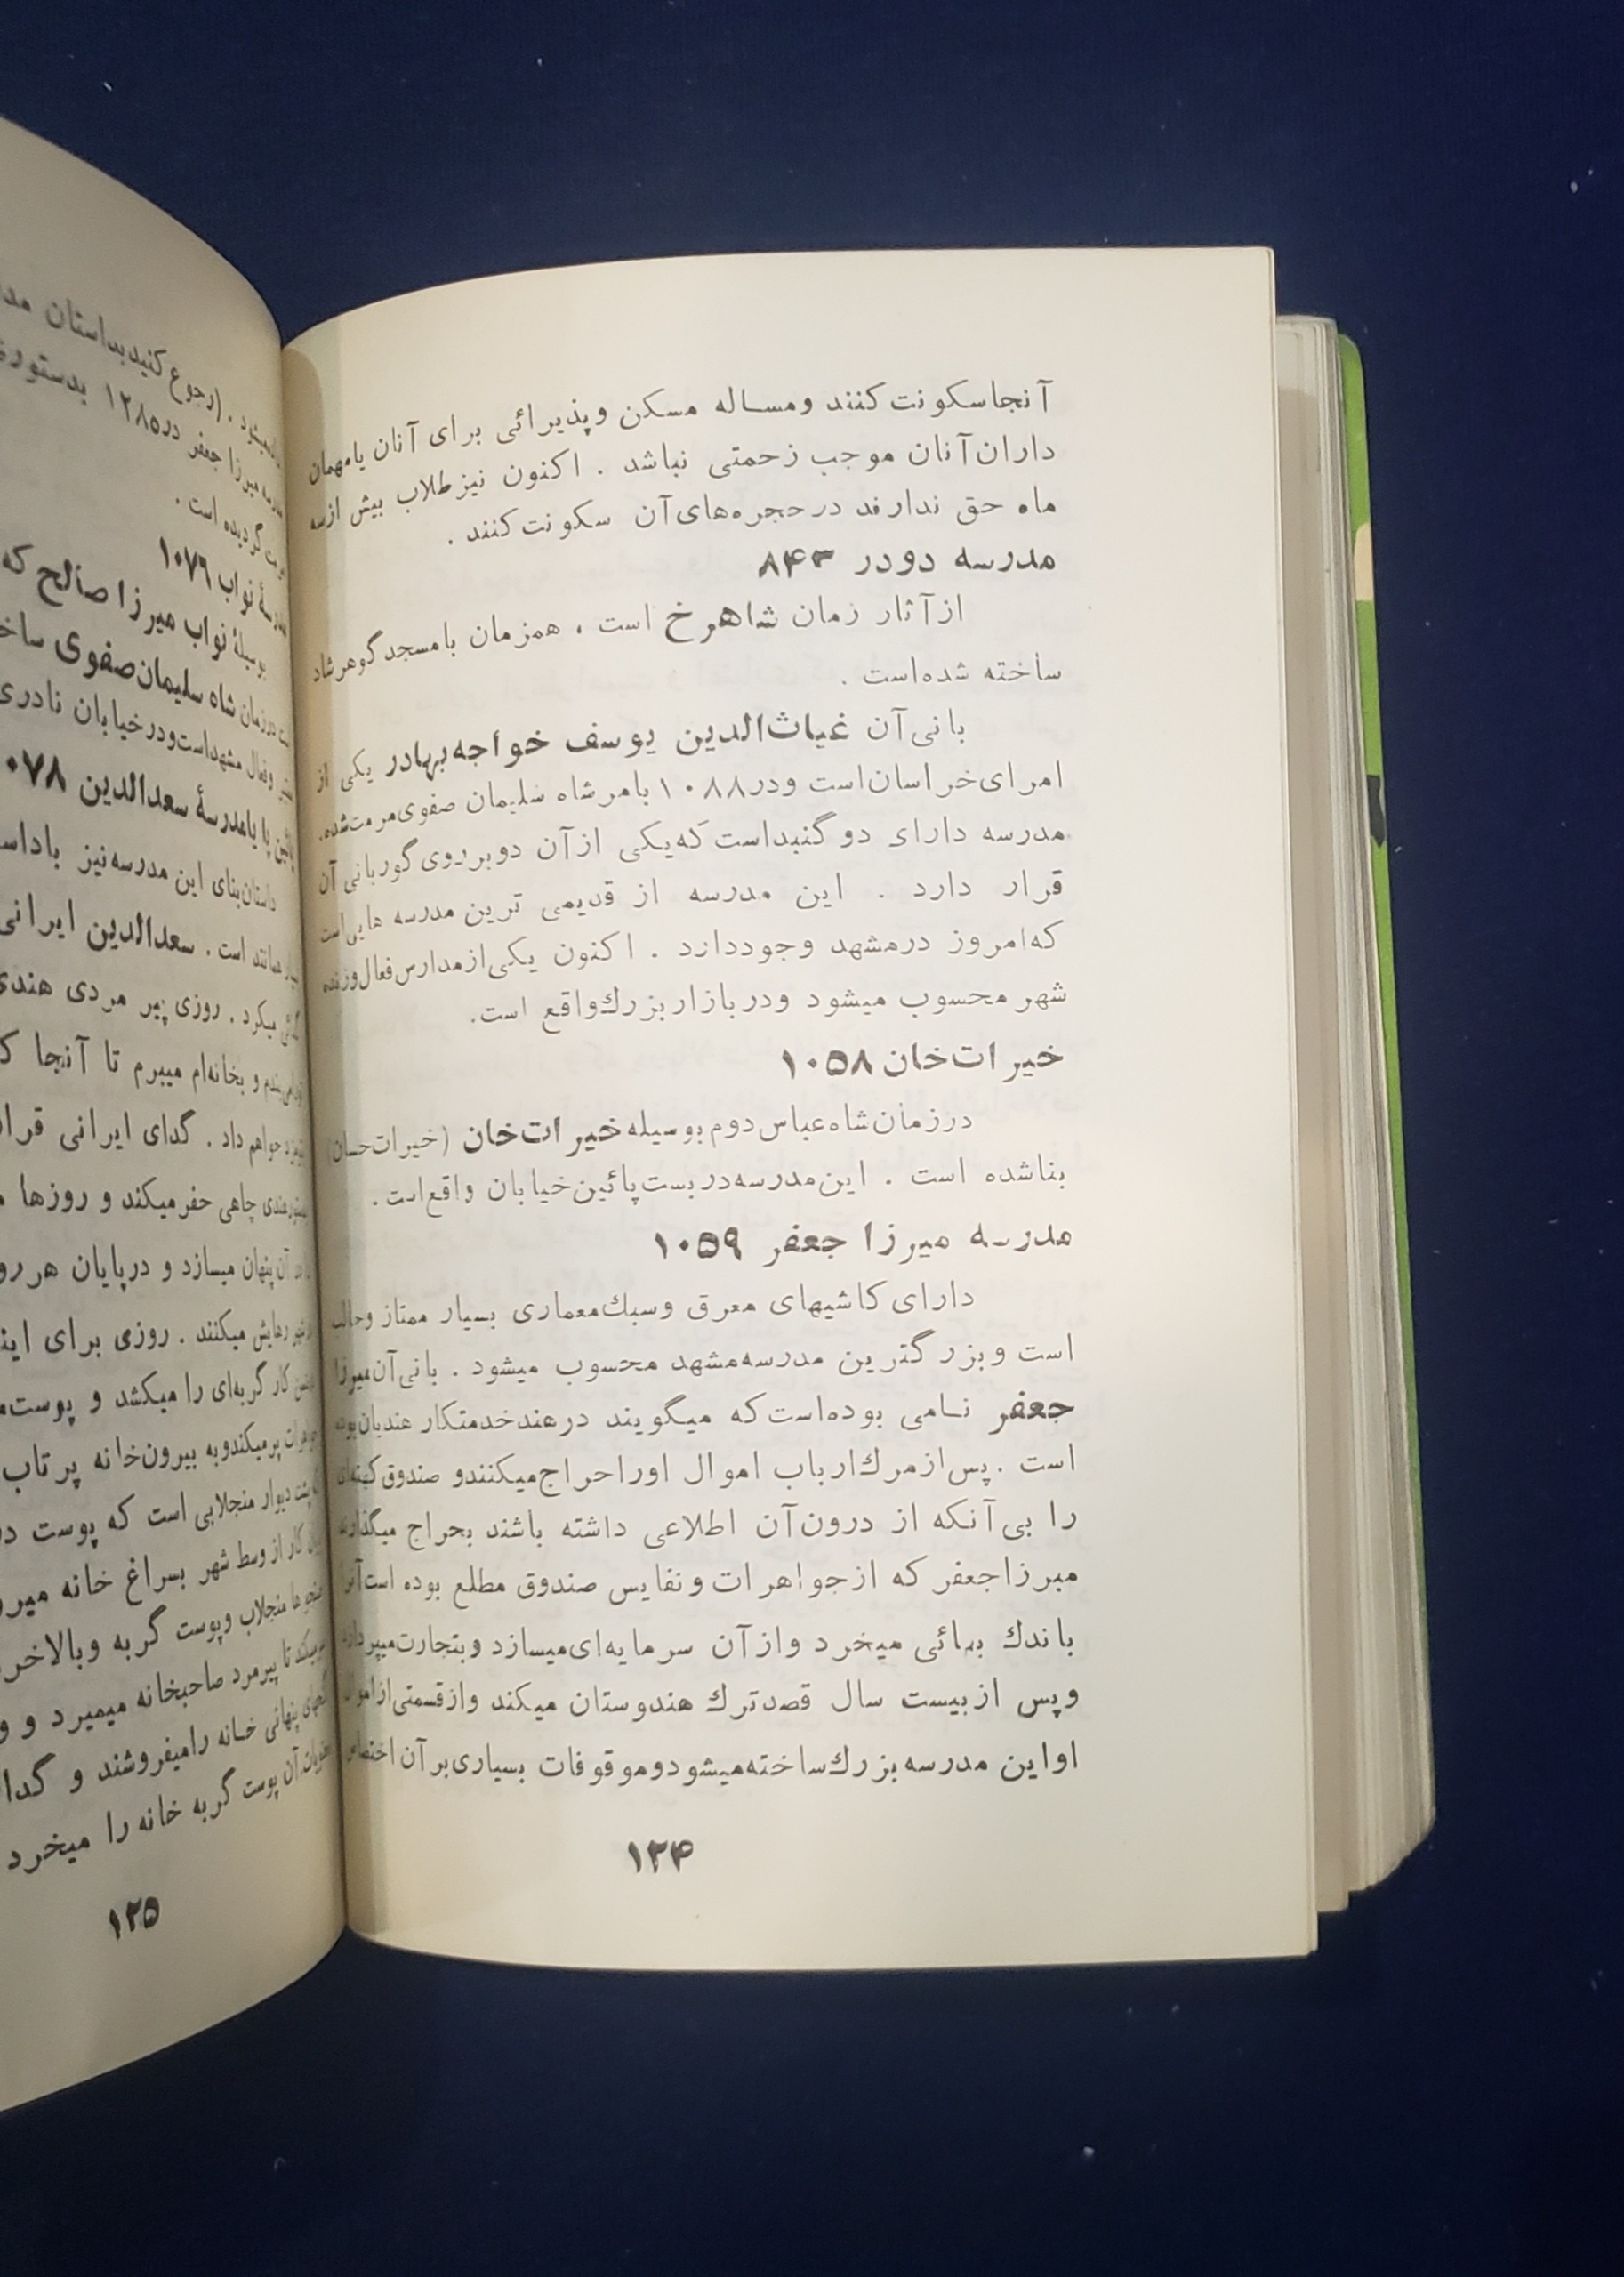 آنجا سکونت کنند ومساله مسکن وپذیرائی برای آنان یامهمان
داران آنان موجب زحمتی نباشد . اکنون نیز طلاب بیش ازسه
ماه حق ندارند درحجره‌های آن سکونت کنند .
مدرسه دودر ۸۴۳
از آثار زمان شاهرخ است ، همزمان بامسجد گوهرشاد
ساخته شده‌است .
بانی آن غیاث‌الدین یوسف خواجه بهادر یکی از
امرای خراسان است ودر ۱۰۸۸ بامر شاه سلیمان صفوی مرمت‌شده.
مدرسه دارای دو گنبداست که یکی از آن دو بر روی گور بانی آن
قرار دارد . این مدرسه از قدیمی ترین مدرسه هایی است
که امروز درمشهد وجوددارد . اکنون یکی از مدارس فعال وزنده
شهر محسوب میشود ودر بازار بزرك واقع است.
خیرات‌خان ۱۰۵۸
درزمان شاه عباس دوم بوسیله خیرات‌خان (خیرات‌حسان)
بناشده است . این مدرسه در بست پائین خیابان واقع است .
مدرسه میرزا جعفر ۱۰۵۹
دارای کاشیهای معرق وسبك معماری بسیار ممتاز وجالب
است و بزرگترین مدرسه مشهد محسوب میشود . بانی آن میرزا
جعفر نامی بوده‌است که میگویند درهند خدمتکار هندیان بوده
است . پس از مرك ارباب اموال اورا حراج میکنند و صندوق کهنه‌ای
را بی آنکه از درون آن اطلاعی داشته باشند بحراج میگذارند
میرزا جعفر که از جواهرات و نفایس صندوق مطلع بوده است آنرا
باندك بهائی میخرد واز آن سرمایه‌ای میسازد و بتجارت میپردازد
وپس از بیست سال قصد ترك هندوستان میکند واز قسمتی از اموال
او این مدرسه بزرك ساخته میشود وموقوفات بسیاری بر آن اختصاص
۱۲۴
(رجوع کنید بداستان
میرزا جعفر در ۱۲۸۵ بدستور
گردیده است .
نواب ۱۰۷۶
بوسیلهٔ نواب میرزا صالح که
شاه سلیمان صفوی
وفعال مشهد است ودر خیابان نادری
پا یا مدرسهٔ سعدالدین
داستان بنای این مدرسه نیز
است . سعدالدین ایرانی
میکرد . روزی پیر مردی هندی
و بخانه‌ام میبرم تا آنجا
خواهم داد . گدای ایرانی
چاهی حفر میکند و روزها
آن پنهان میسازد و درپایان
رهایش میکنند . روزی برای
کار گربه‌ای را میکشد و
پر میکند و به بیرون خانه پرتاب
دیوار منجلابی است که پوست
کار از وسط شهر بسراغ خانه
منجلاب و پوست گربه و بالاخره
تا پیر مرد صاحبخانه میمیرد و
پنهانی خانه را میفروشند و
آن پوست گربه خانه را میخرد
۱۲۵